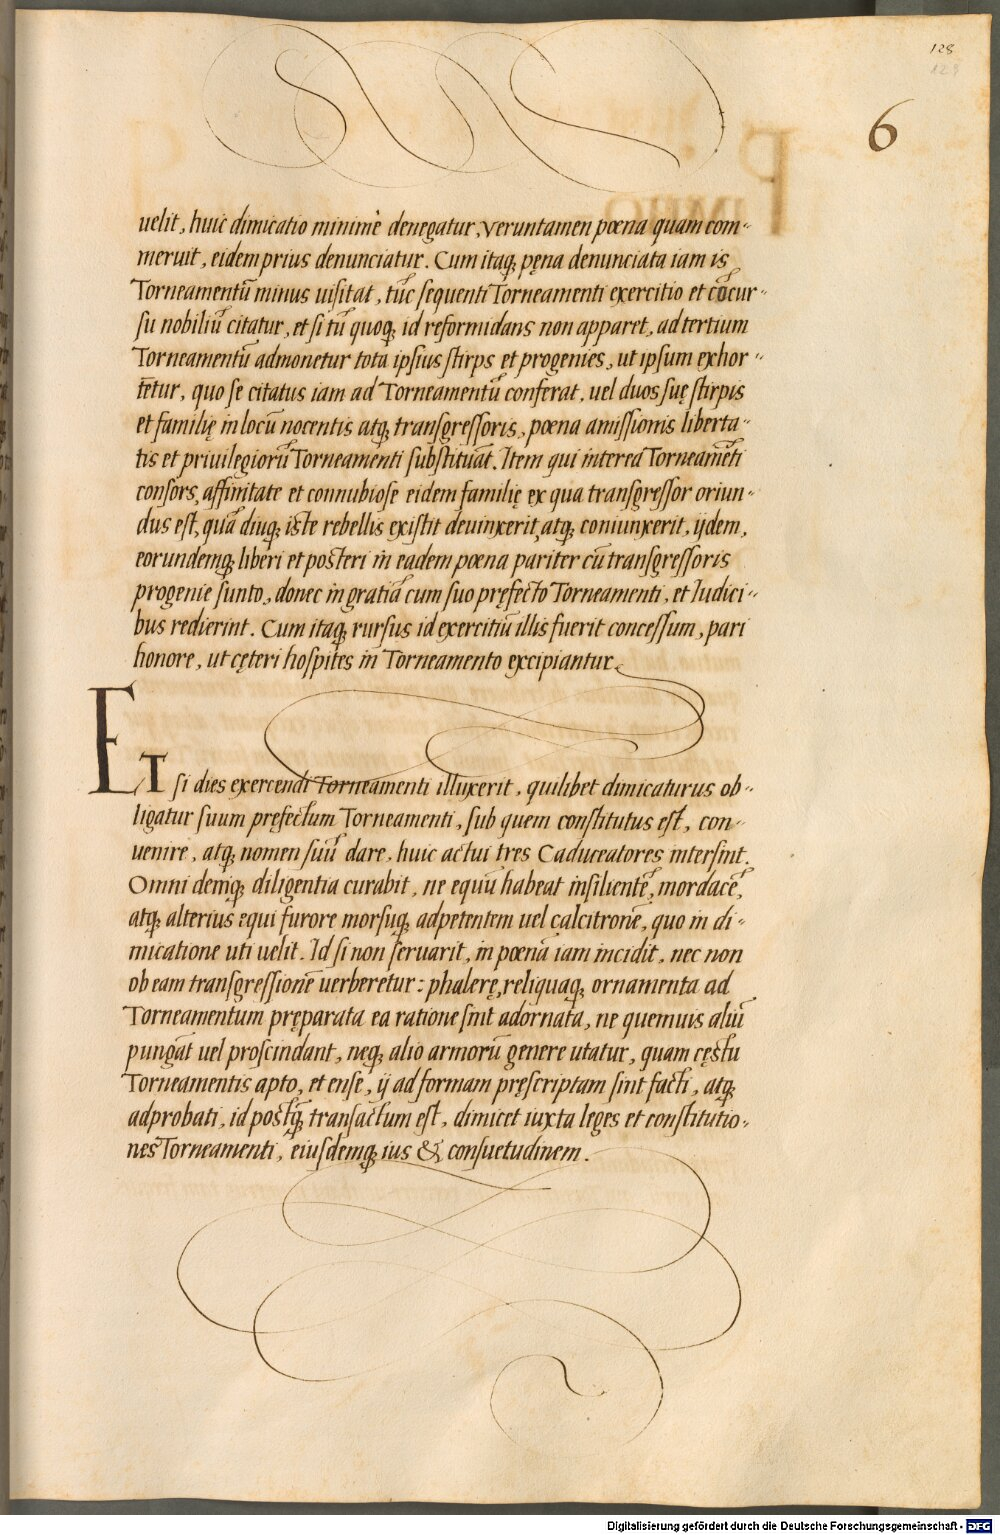 128
129
6
uelit, huic dimicatio minimè denegatur, veruntamen pœna quam com-
meruit, eidem prius denunciatur. Cum itaq; pęna denunciata iam is
Torneamentū minus uisitat, tūc sequenti Torneamenti exercitio et cōcur-
su nobiliū citatur, et si tū quoq; id reformidans non apparet, ad tertium
Torneamentū admonetur tota ipsius stirps et progenies, ut ipsum exhor-
tētur, quo se citatus iam ad Torneamentū conferat, uel duos suę stirpis
et familię in locū nocentis atq; transgressoris, pœna amissionis liberta-
tis et priuilegiorū Torneamenti substituāt. Item qui interea Torneamēti
consors, affinitate et connubio se eidem familię ex qua transgressor oriun-
dus est, quā diuq; iste rebellis existit deuinxerit, atq; coniunxerit, ijdem,
eorundemq; liberi et posteri in eadem pœna pariter cū transgressoris
progenie sunto, donec in gratiā cum suo pręfecto Torneamenti, et Iudici-
bus redierint. Cum itaq; rursus id exercitiū illis fuerit concessum, pari
honore, ut cęteri hospites in Torneamento excipiantur.
ET si dies exercendi Torneamenti illuxerit, quilibet dimicaturus ob-
ligatur suum pręfectum Torneamenti, sub quem constitutus est, con-
uenire, atq; nomen suū dare, huic actui tres Caduceatores intersint.
Omni deniq; diligentia curabit, ne equū habeat insilientē, mordacē,
atq; alterius equi furore morsuq; adpetentem uel calcitronē, quo in di-
micatione uti uelit. Id si non seruarit, in pœnā iam incidit, nec non
ob eam transgressionē uerberetur: phalerę, reliquaq; ornamenta ad
Torneamentum pręparata ea ratione sint adornata, ne quemuis aliū
pungāt uel proscindant, neq; alio armorū genere utatur, quam cęstu
Torneamentis apto, et ense, ij ad formam pręscriptam sint facti, atq;
adprobati, id postq̄ transactum est, dimicet iuxta leges et constitutio-
nes Torneamenti, eiusdemq; ius & consuetudinem.
Digitalisierung gefördert durch die Deutsche Forschungsgemeinschaft - DFG